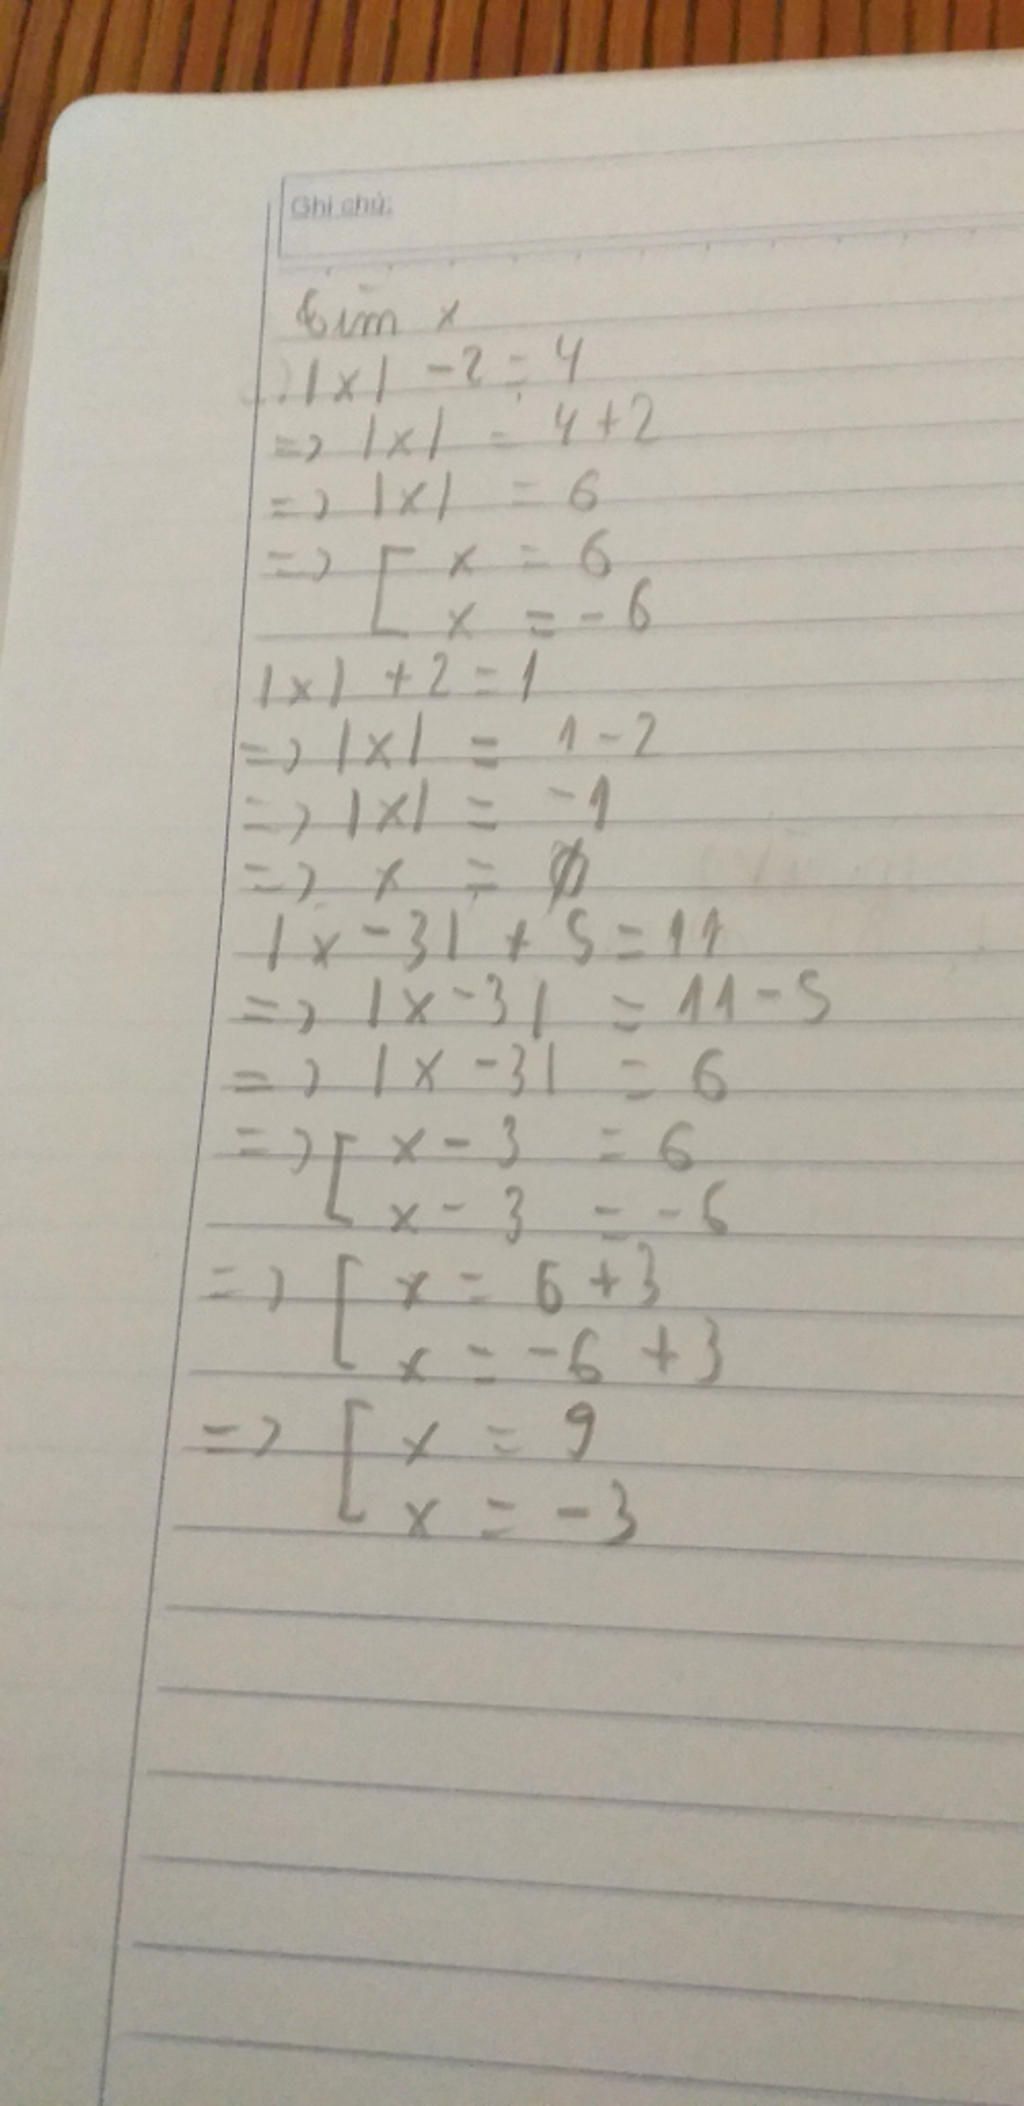 Ghi chú:
tìm x
|x| - 2 = 4
=> |x| = 4 + 2
=> |x| = 6
=> [ x = 6
x = - 6
|x| + 2 = 1
=> |x| = 1 - 2
=> |x| = - 1
=> x = ∅
|x - 3| + 5 = 11
=> |x - 3| = 11 - 5
=> |x - 3| = 6
=> [ x - 3 = 6
x - 3 = - 6
=> [ x = 6 + 3
x = - 6 + 3
=> [ x = 9
x = - 3